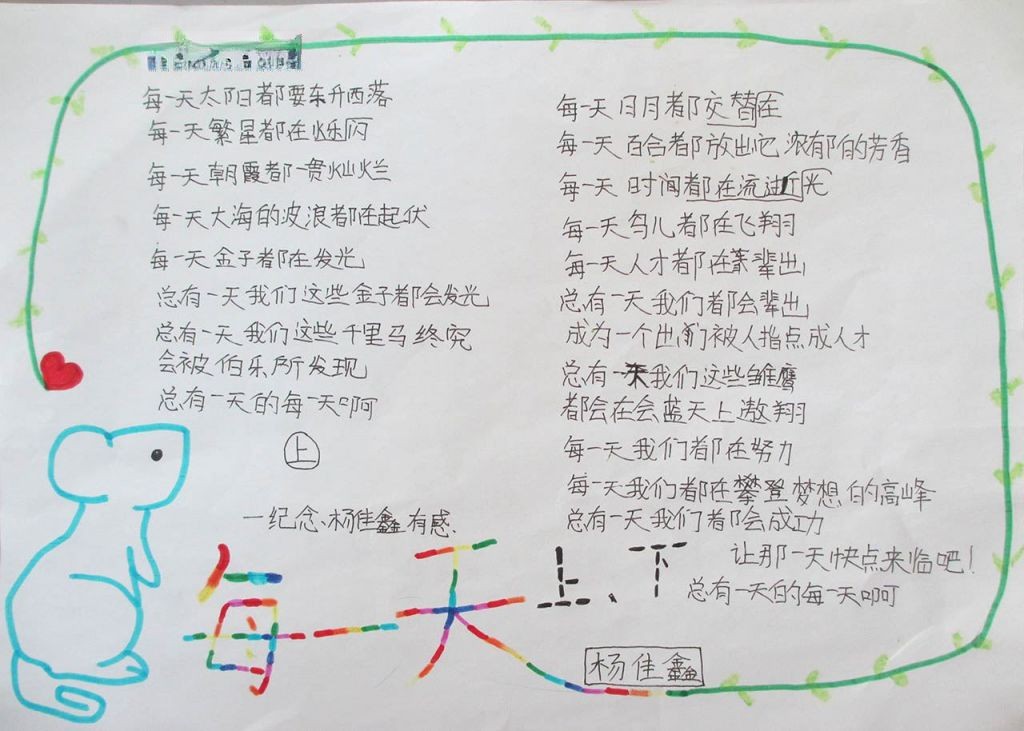 每一天太阳都要东升西落
每一天繁星都在烁闪
每一天朝霞都一贯灿烂
每一天大海的波浪都在起伏
每一天金子都在发光
总有一天我们这些金子都会发光
总有一天我们这些千里马终究
会被伯乐所发现
总有一天的每一天啊
上
一纪念、杨佳鑫有感、
每一天日月都交替在
每一天百合都放出它浓郁的芳香
每一天时间都在流逝光
每一天鸟儿都在飞翔
每一天人才都在辈出
总有一天我们都会辈出
成为一个出们被人指点成人才
总有一天我们这些雏鹰
都会在会蓝天上遨翔
每一天我们都在努力
每一天我们都在攀登梦想的高峰
总有一天我们都会成功
让那一天快点来临吧!
总有一天的每一天啊
每一天上、下
杨佳鑫